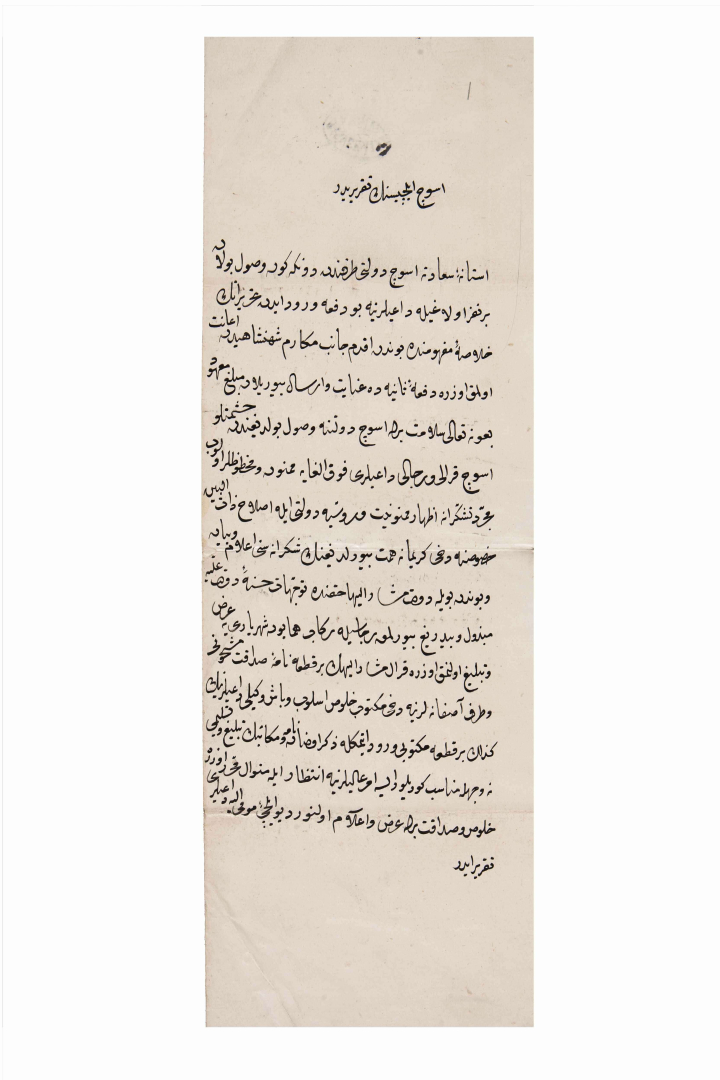 اسوج ایلچیسنك تقریریدر
استانهٔ سعادته اسوج دولتی طرفندن دونكه كون وصول بولان
بر نفر اولاغیله داعیلرینه بو دفعه ورود ایدن تحریراتك
خلاصهٔ مفهومنده بوندن اقدم جانب مكارم شهنشاهیدن اعانت
اولمق اوزره دفعهٔ ثانیه ده عنایت وارسال بیوریلان مبلغ معهود
بعونه تعالی سلامت برله اسوج دولتنه وصول بولدیغندن حشمتلو
اسوج قرالی و رجالی داعیلری فوق الغایه ممنون و محظوظلر اولوب
مجرد تشكرانه اظهار ممنونیت و روسیه دولتی ایله اصلاح ذات البین
خصوصنه دخی كریمانه همت بیورلدیغنك شكرانه سنی اعلام و بیان
و بوندن بویله دولت مشار الیها حقنده توجهات حسنهٔ دولت علیه
مبذول و بیدریغ بیورلمق رجاسیله ركاب همایون شهریاری یه عرض
و تبلیغ اولنمق اوزره قرال مشار الیهك بر قطعه نامهٔ صداقت مشحونی
و طرف آصفانه لرینه دخی مكتوب خلوص اسلوب و باش وكیلی داعیلرینك
كذلك بر قطعه مكتوبی ورود ایتمكله ذكر اولنان نامه و مكاتبك تبلیغ و تسلیمی
نه وجهله مناسب كوریلور ایسه امر عالیلرینه انتظار ایله منوال محرر اوزره
خلوص و صداقت برله عرض و اعلام اولنور دیو ایلچیٔ مومی الیه داعیلری
تقریر ایدر